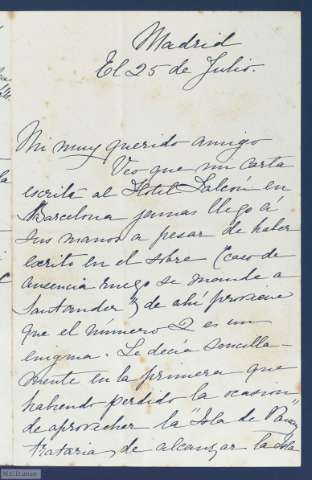 Madrid
El 25 de Julio.
Mi muy querido amigo
Veo que mi carta
escrita al Hotel Falcón en
Barcelona jamas llegó á
sus manos a pesar de haber
escrito en el sobre (caso de
ausencia ruego se mande a
Santander") de ahí proviene
que el número 2 es un
enigma. Le decía sencilla-
mente en la primera que
habiendo perdido la ocasion
de aprovechar la "Isla de
trataria de alcanzar la Isla